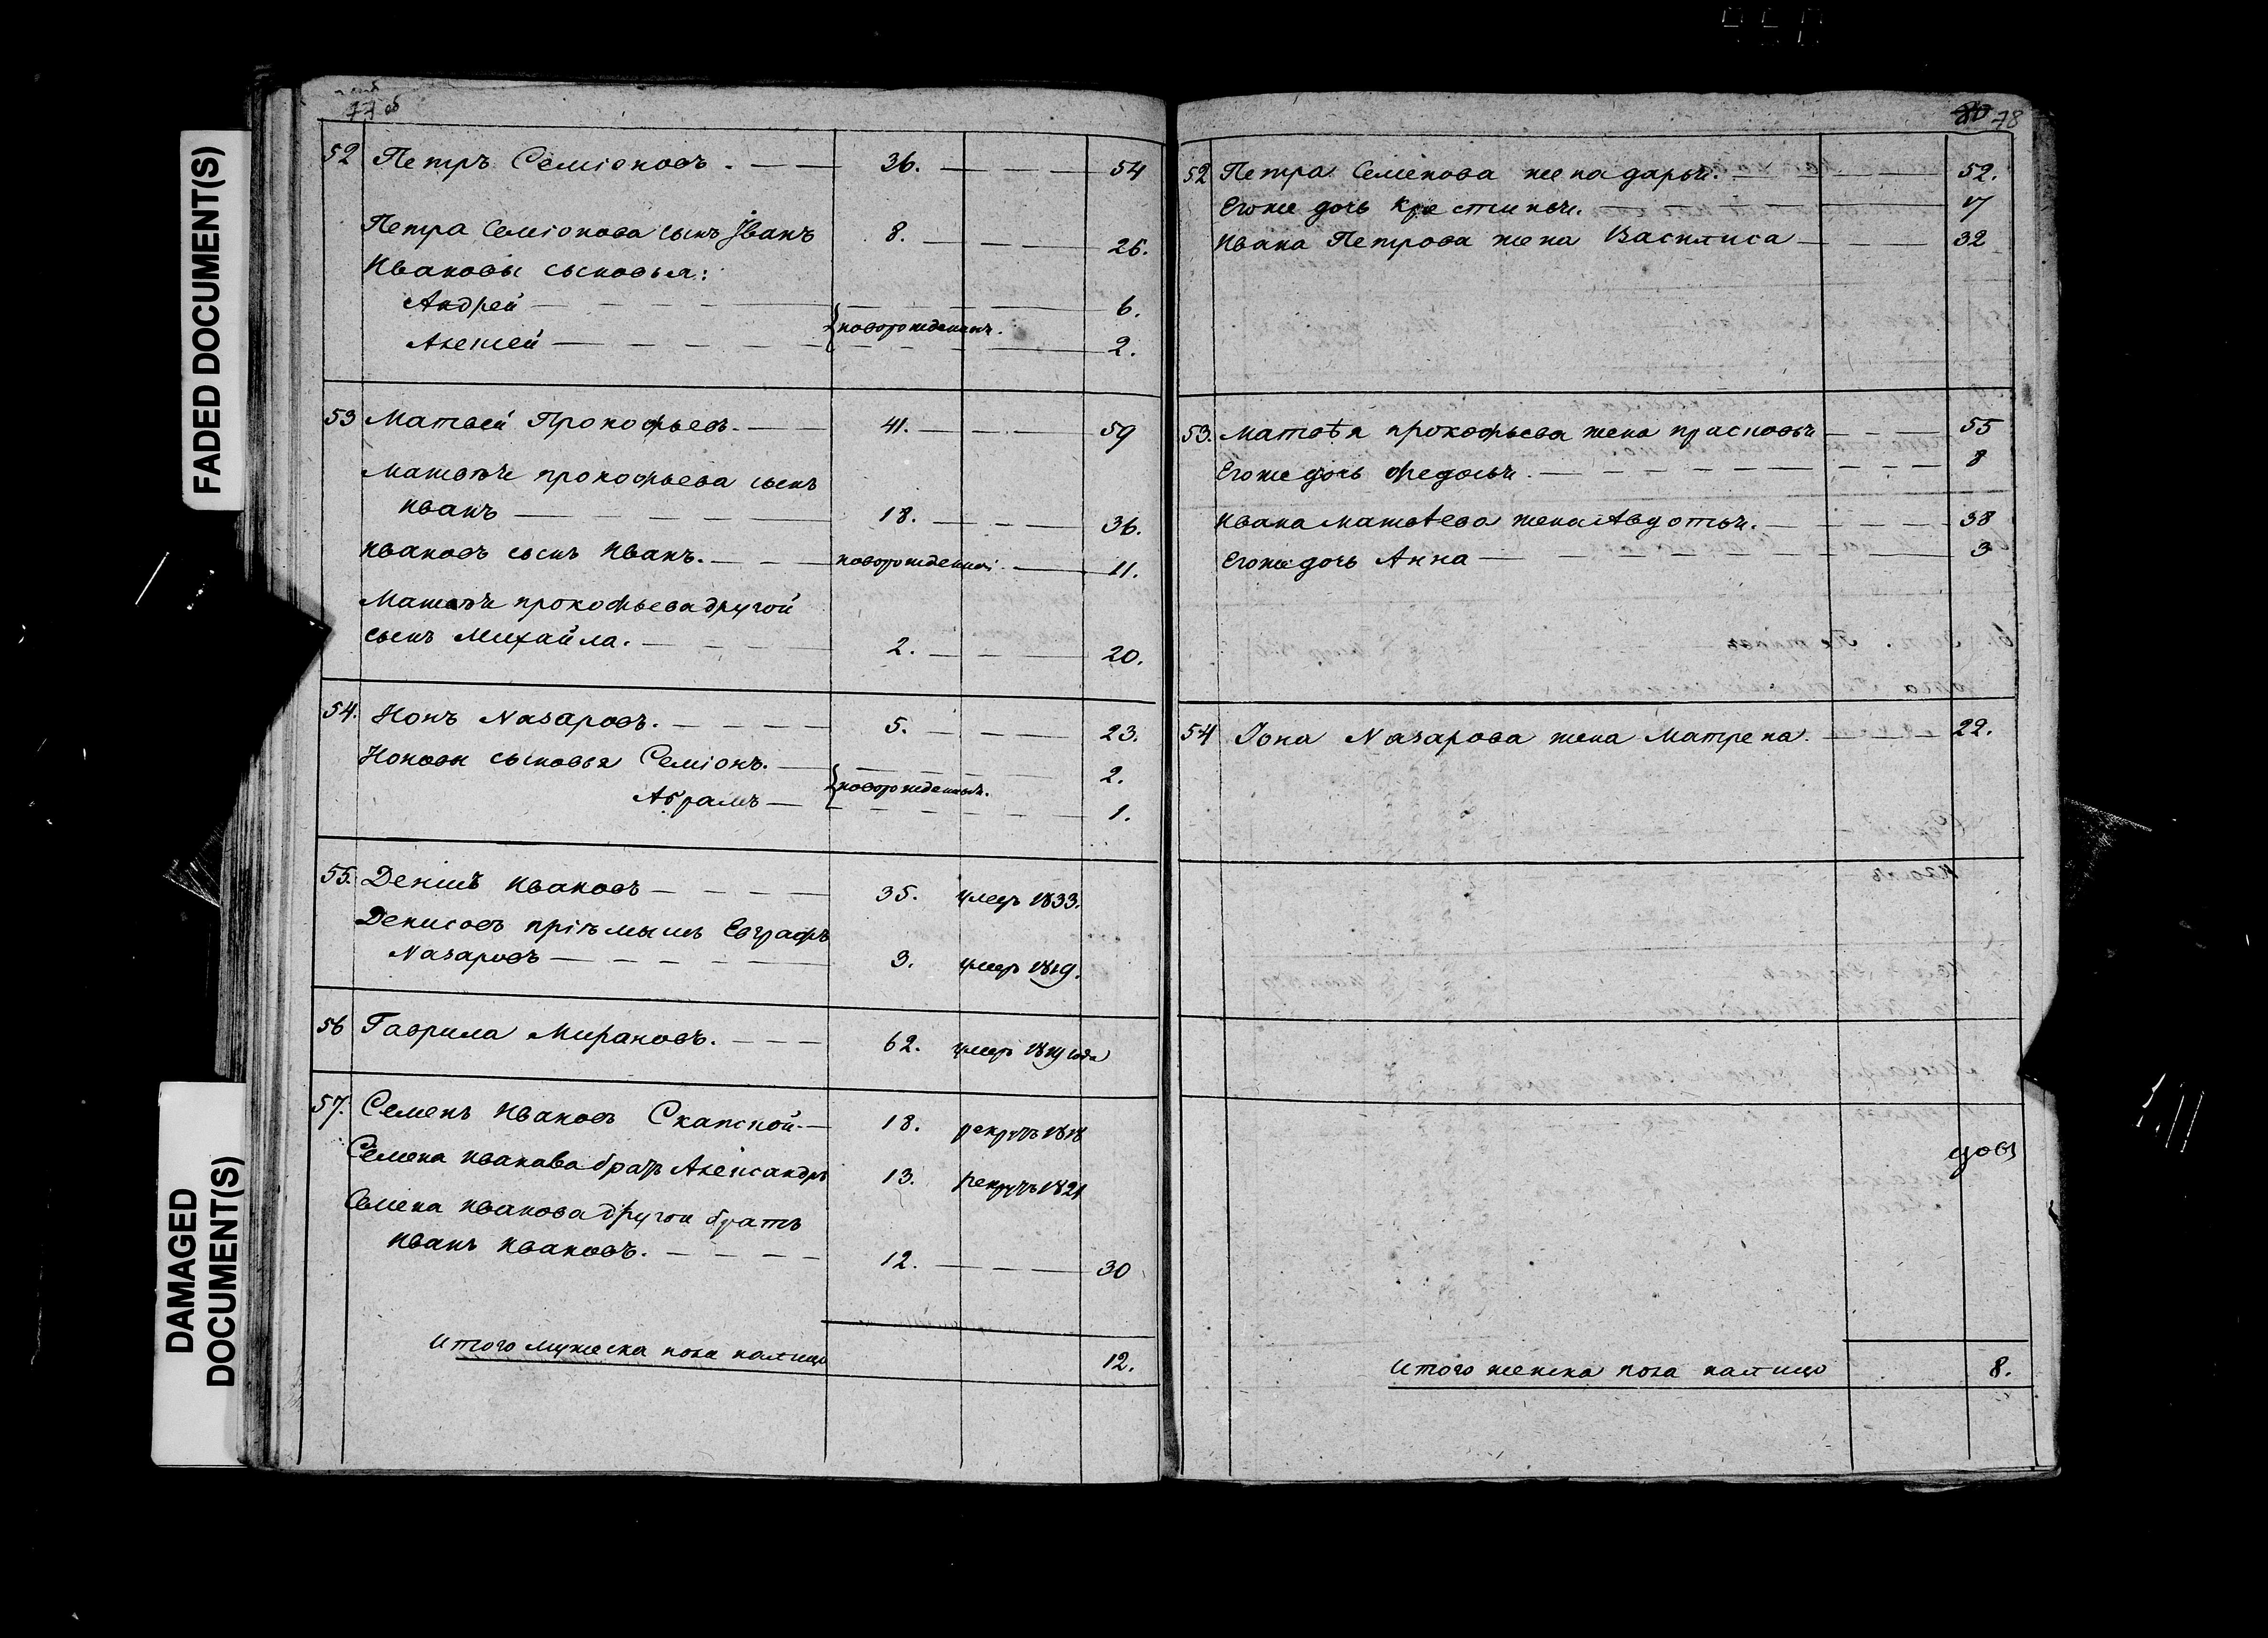 FADED DOCUMENT(S)
DAMAGED
DOCUMENT(S)
77 об
52 Петръ Семіоновъ. 36. 54
Петра Семіонова сынъ Іванъ 8. 26.
Ивановы сыновья:
Андрей 6.
новорожденныя.
Алексей 2.
53 Матвей Прокофьевъ. 41. 59
Матвѣя прокофьева сынъ
иванъ 18. 36.
ивановъ сынъ Иванъ. новорожденной 11.
Матвѣя прокофьева другой
сынъ Михайла. 2. 20.
54. Iонъ Nазаровъ. 5. 23.
Iоновы сыновья Семіонъ. 2.
новорожденныя.
Абрамъ 1.
55. Денисъ ивановъ 35. умеръ 1833.
Денисовъ пріемышъ Евграфъ
Nазаровъ 3. умеръ 1819.
56 Гаврила Мироновъ. 62. умеръ 1819 года
57. Семенъ ивановъ 18. рекрутъ 1818
Семена иванова братъ Александръ 13. рекрутъ 1821
Семена иванова другои братъ
иванъ ивановъ. 12. 30
Итого мужеска пола налицо 12.
80 78
52 Петра Семенова жена дарья. 52.
Егоже дочь Крестинья. 17
ивана Петрова жена Василиса 32
53. матвѣя прокофьева жена прасковья 55
Егоже дочь федосья. 8
ивана матвѣева жена Авдотья. 38
Егоже дочь Анна 3
54 Iона Nазарова жена Матрена. 22.
Итого женска пола налицо 8.